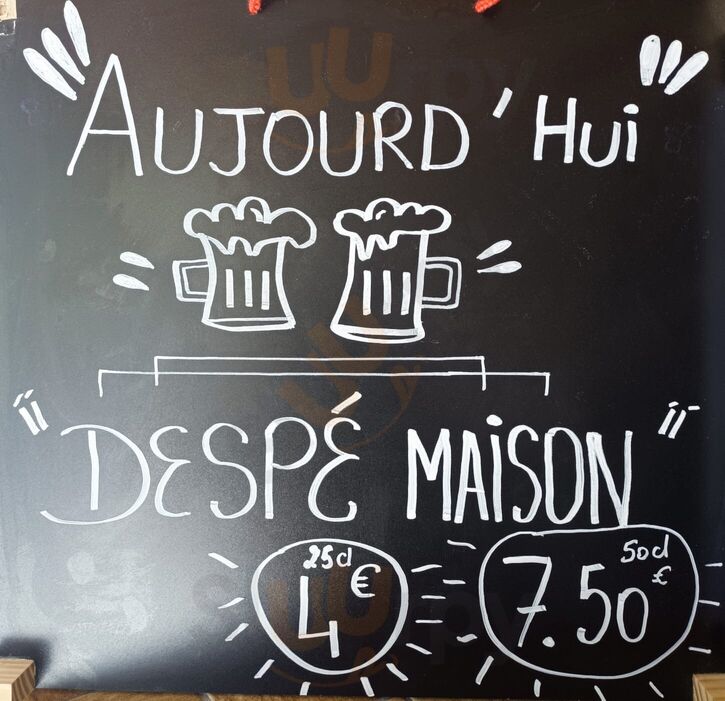 AUJOURD'HUi
DESPÉ MAiSON
25cl
4€
50cl
7.50€